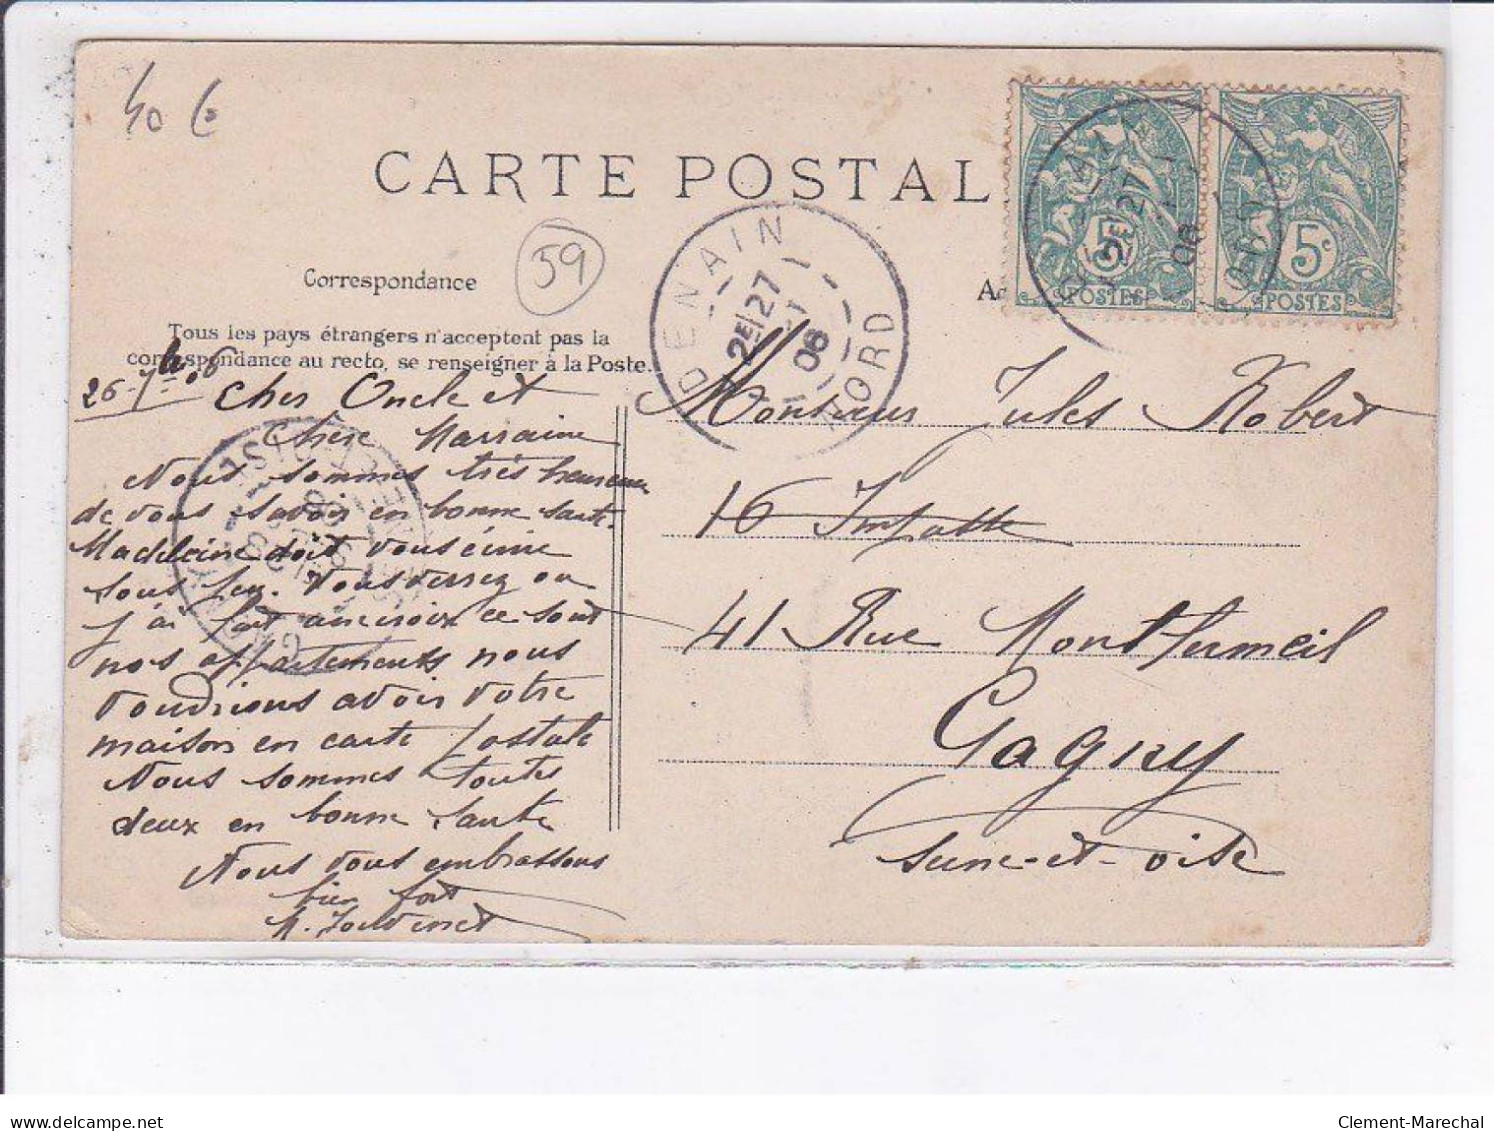 40 €
CARTE POSTAL
59
Correspondance
Tous les pays étrangers n'acceptent pas la
correspondance au recto, se renseigner à la Poste.
DENAIN
2E/27
06
NORD
5
POSTES
5c
POSTES
26-7bre 06
Cher Oncle et
Chère Marraine
Nous sommes très heureuse
de vous savoir en bonne santé.
Madeleine doit vous
sous peu. Vous verrez ou
j'ai fait une croix ce sont
nos appartements nous
voudrions avoir votre
maison en carte postale
Nous sommes toutes
deux en bonne santé
Nous vous embrassons
bien fort
Monsieur Jules Robert
16 Impasse
41 Rue Montfermeil
Gagny
Seine-et-oise
delcampe.net
Clement-Marechal